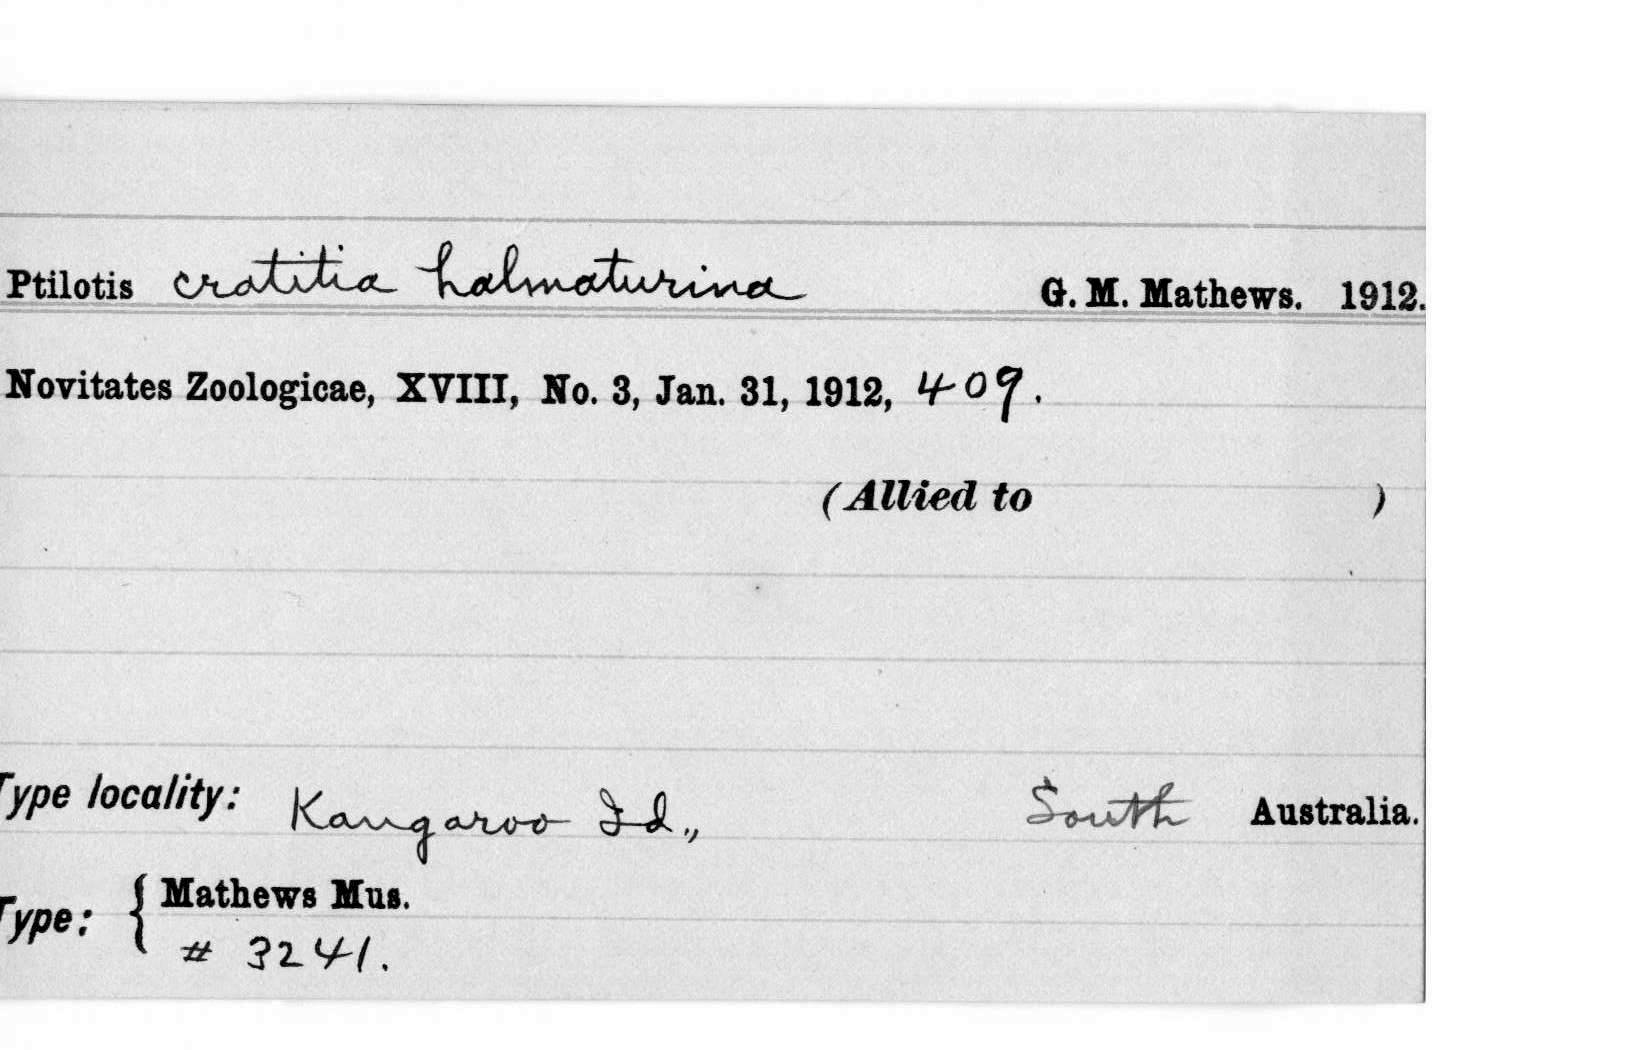 Ptilotis cratitia halmaturina G. M. Mathews. 1912.
Novitates Zoologicae, XVIII, No. 3, Jan. 31, 1912, 409.
(Allied to )
Type locality: Kangaroo Id., South Australia.
Type: { Mathews Mus.
# 3241.